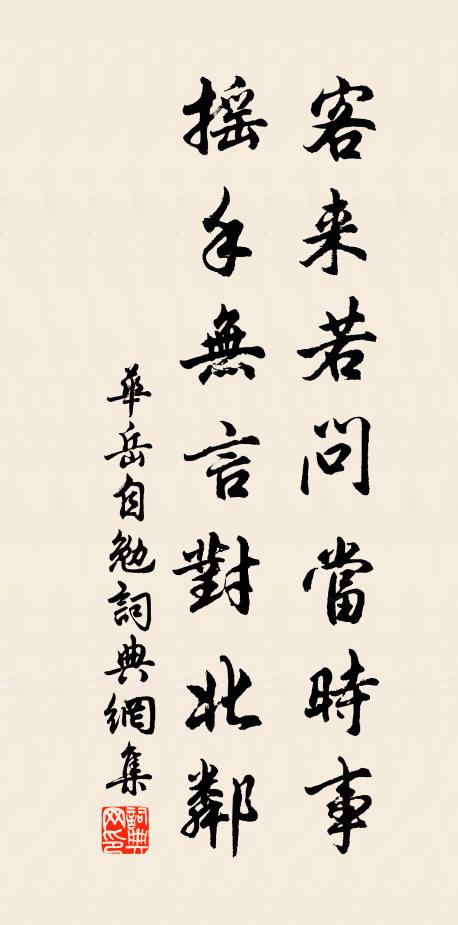 客来若問當時事
摇手無言對北鄰
華岳自勉詞典網集
詞典
网印